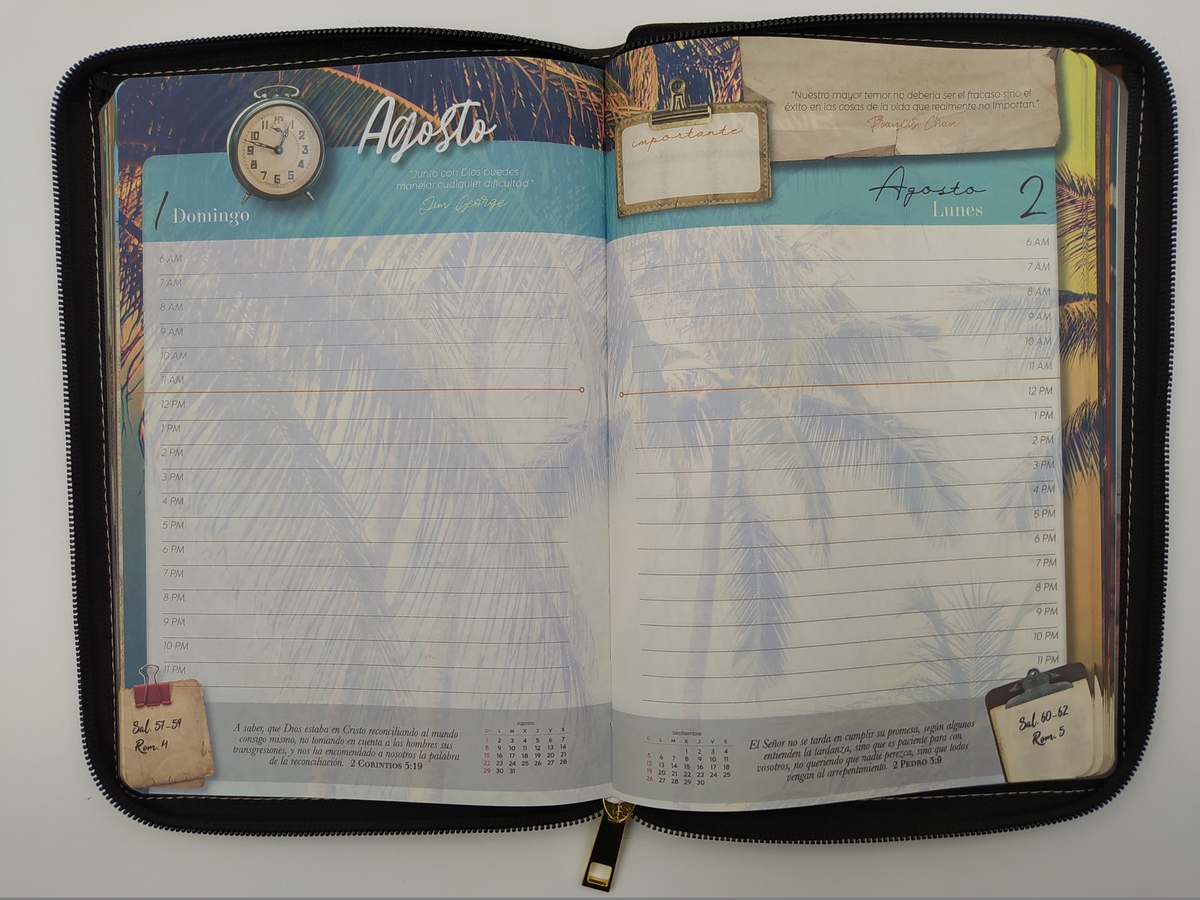 Agosto
"Junto con Dios puedes
manejar cualquier dificultad."
Jim George
1 Domingo
6 AM
7 AM
8 AM
9 AM
10 AM
11 AM
12 PM
1 PM
2 PM
3 PM
4 PM
5 PM
6 PM
7 PM
8 PM
9 PM
10 PM
11 PM
Sal. 57-59
Rom. 4
A saber, que Dios estaba en Cristo reconciliando al mundo
consigo mismo, no tomando en cuenta a los hombres sus
transgresiones, y nos ha encomendado a nosotros la palabra
de la reconciliación. 2 Corintios 5:19
Agosto
D L M X J V S
1 2 3 4 5 6 7
8 9 10 11 12 13 14
15 16 17 18 19 20 21
22 23 24 25 26 27 28
29 30 31
importante
"Nuestro mayor temor no debería ser el fracaso sino el
éxito en las cosas de la vida que realmente no importan."
Francis Chan
Agosto
Lunes 2
6 AM
7 AM
8 AM
9 AM
10 AM
11 AM
12 PM
1 PM
2 PM
3 PM
4 PM
5 PM
6 PM
7 PM
8 PM
9 PM
10 PM
11 PM
Septiembre
D L M X J V S
1 2 3 4
5 6 7 8 9 10 11
12 13 14 15 16 17 18
19 20 21 22 23 24 25
26 27 28 29 30
El Señor no se tarda en cumplir su promesa, según algunos
entienden la tardanza, sino que es paciente para con
vosotros, no queriendo que nadie perezca, sino que todos
vengan al arrepentimiento. 2 Pedro 3:9
Sal. 60-62
Rom. 5